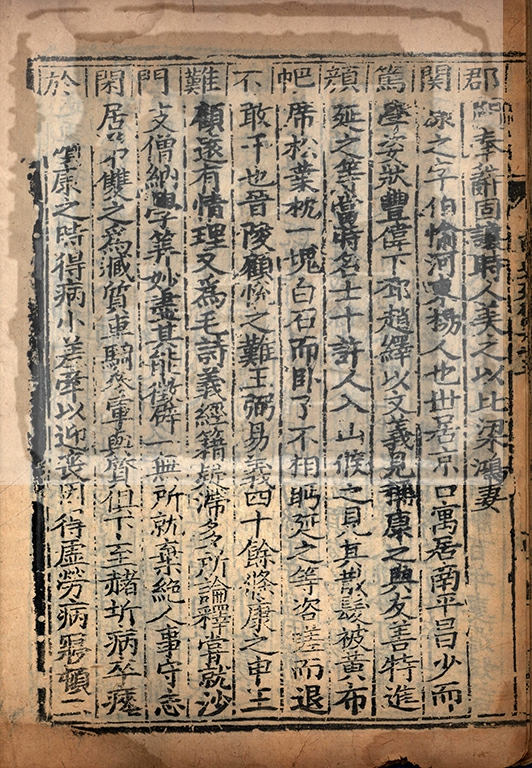 郡奉辭固讓時人美之以比梁鴻妻
關康之字伯愉河東楊人也世居京口寓居南平昌少而
篤學姿狀豐偉下邳趙繹以文義見稱康之與友善特進
顔延之等當時名士十許人入山候之見其散髮被黃布
帊席松葉枕一塊白石而卧了不相眄延之等咨嗟而退
不敢干也晉陵顧悅之難王弼易義四十餘條康之申王
難顧遠有情理又爲毛詩義經籍疑滯多所論釋嘗就沙
門支僧納學筭妙盡其能徵辟一無所就棄絕人事守志
閑居弟雙之爲臧質車騎參軍與質俱下至赭圻病卒瘞
於康之時得病小差牽以迎喪因得虛勞病寢頓二